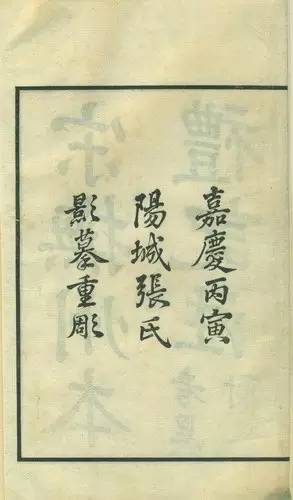 嘉慶丙寅
陽城張氏
影摹重彫